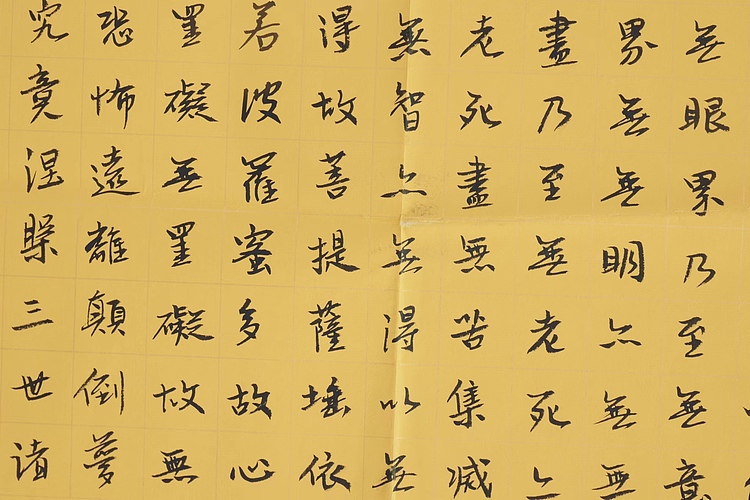 無眼界乃至無意
界無無明亦無無
盡乃至無老死亦
老死盡無苦集滅
無智亦無得以無
得故菩提薩埵依
若波羅蜜多故心
罣礙無罣礙故無
恐怖遠離顛倒夢
究竟涅槃三世諸